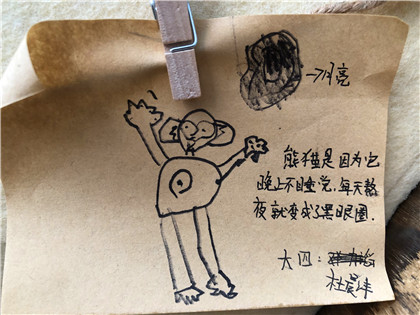 →月亮
熊猫是因为它
晚上不睡觉,每天熬
夜就变成了黑眼圈.
大四:
杜晨沣